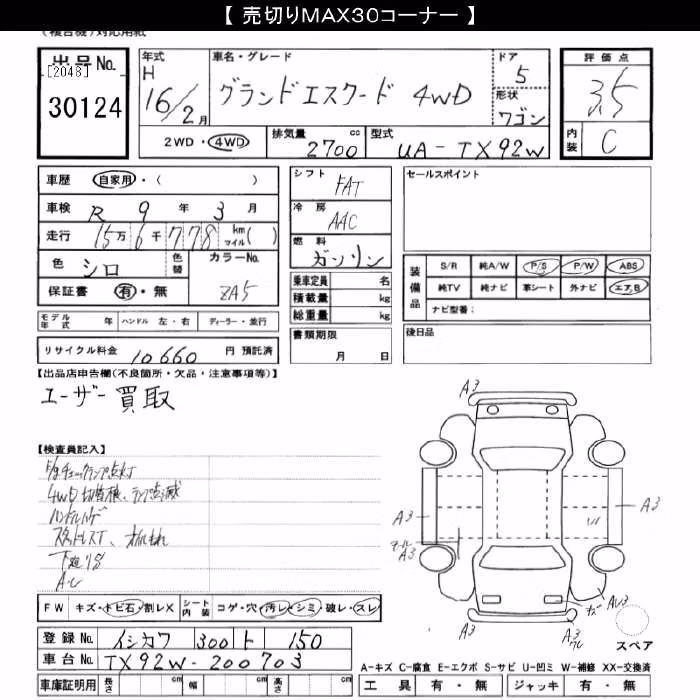 【 売切りMAX30コーナー 】
(複合機)対応用紙
出品No.
[2048]
30124
年式
H
16/2月
車名・グレード
グランドエスクード 4WD
ドア
5
形状
ワゴン
評価点
3.5
内装
C
2WD・4WD
排気量
2700
cc
型式
UA-TX92W
車歴
自家用・( )
車検 R 9年 3月
走行 15万6千778 km マイル( )
色 シロ
色替
カラーNo.
ZA5
保証書 有・無
モデル年式 年 ハンドル 左・右 ディーラー・並行
リサイクル料金 10660 円 預託済
シフト
FAT
冷房
AAC
燃料
ガソリン
乗車定員 名
積載量 kg
総重量 kg
書類期限
月 日
セールスポイント
装備品
S/R 純A/W P/S P/W ABS
純TV 純ナビ 革シート 外ナビ エアB
ナビ型番:
後日品
【出品店申告欄(不良箇所・欠品・注意事項等)】
ユーザー買取
【検査員記入】
4WD切替機、ランプ点滅
下廻りS
FW キズ・トビ石・割レX
シート内装 コゲ・穴・汚レ・シミ・破レ・スレ
登録No. イシカワ 300 ト 150
車台No. TX92W-200703
車庫証明用 長さ cm 幅 cm 高さ cm
A3
A3
A3
A3
A3
スペア
A-キズ C-腐食 E-エクボ S-サビ U-凹ミ W-補修 XX-交換済
工具 有・無 ジャッキ 有・無